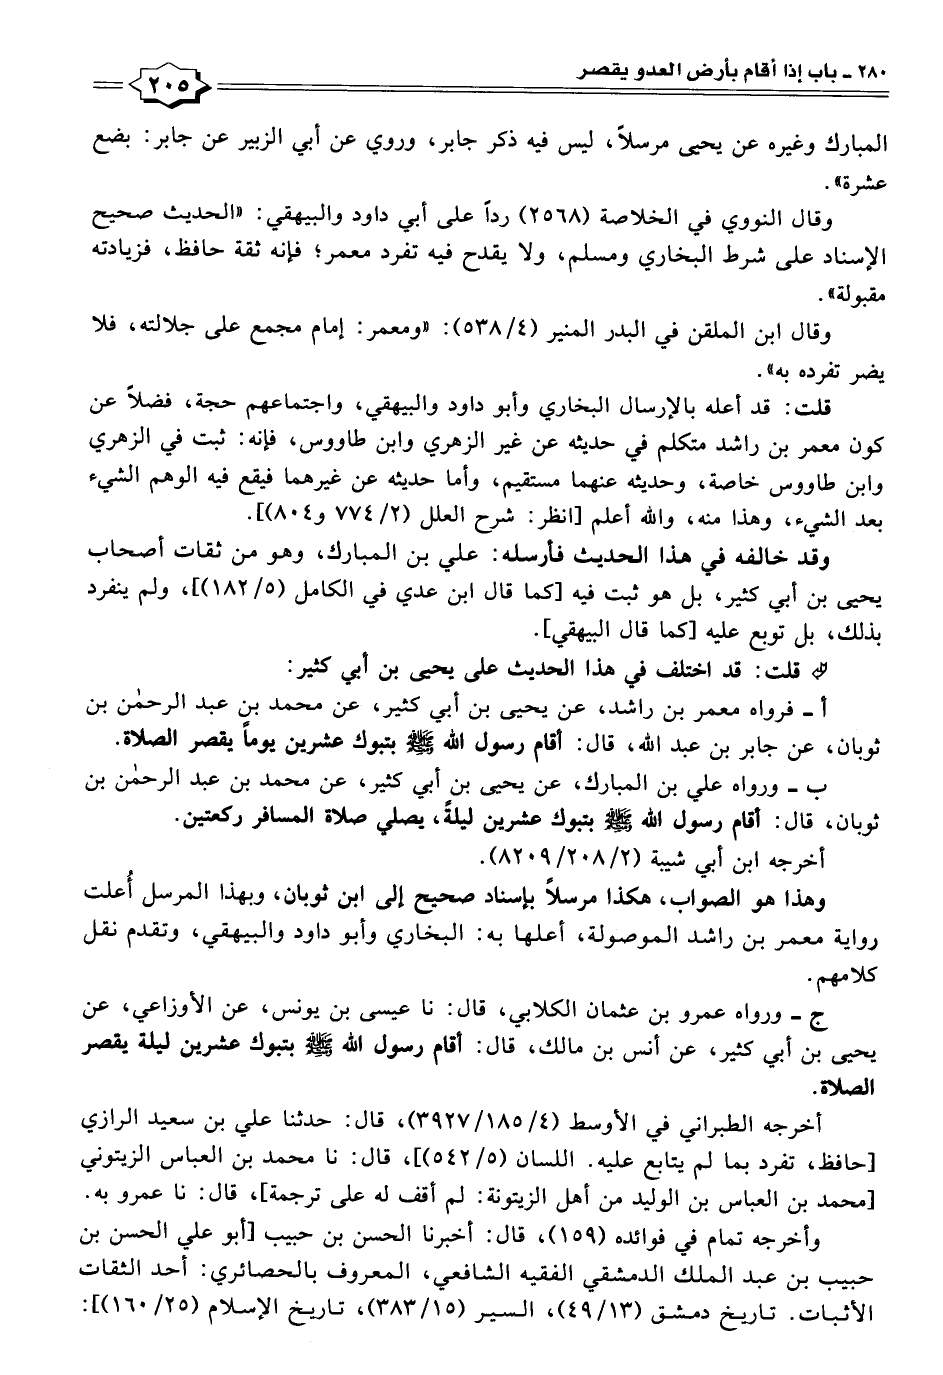 ٢٨٠ ـ باب إذا أقام بأرض العدو يقصر
٢٠٥
المبارك وغيره عن يحيى مرسلاً، ليس فيه ذكر جابر، وروي عن أبي الزبير عن جابر: بضع
عشرة».
وقال النووي في الخلاصة (٢٥٦٨) رداً على أبي داود والبيهقي: «الحديث صحيح
الإسناد على شرط البخاري ومسلم، ولا يقدح فيه تفرد معمر؛ فإنه ثقة حافظ، فزيادته
مقبولة».
وقال ابن الملقن في البدر المنير (٥٣٨/٤): «ومعمر: إمام مجمع على جلالته، فلا
يضر تفرده به».
قلت: قد أعله بالإرسال البخاري وأبو داود والبيهقي، واجتماعهم حجة، فضلاً عن
كون معمر بن راشد متكلم في حديثه عن غير الزهري وابن طاووس، فإنه: ثبت في الزهري
وابن طاووس خاصة، وحديثه عنهما مستقيم، وأما حديثه عن غيرهما فيقع فيه الوهم الشيء
بعد الشيء، وهذا منه، والله أعلم [انظر: شرح العلل (٧٧٤/٢ و٨٠٤)].
وقد خالفه في هذا الحديث فأرسله: علي بن المبارك، وهو من ثقات أصحاب
يحيى بن أبي كثير، بل هو ثبت فيه [كما قال ابن عدي في الكامل (١٨٢/٥)]، ولم ينفرد
بذلك، بل توبع عليه [كما قال البيهقي].
قلت: قد اختلف في هذا الحديث على يحيى بن أبي كثير:
أ ـ فرواه معمر بن راشد، عن يحيى بن أبي كثير، عن محمد بن عبد الرحمٰن بن
ثوبان، عن جابر بن عبد الله، قال: أقام رسول الله ﷺ بتبوك عشرين يوماً يقصر الصلاة.
ب ـ ورواه علي بن المبارك، عن يحيى بن أبي كثير، عن محمد بن عبد الرحمٰن بن
ثوبان، قال: أقام رسول الله ﷺ بتبوك عشرين ليلةً، يصلي صلاة المسافر ركعتين.
أخرجه ابن أبي شيبة (٨٢٠٩/٢٠٨/٢).
وهذا هو الصواب، هكذا مرسلاً بإسناد صحيح إلى ابن ثوبان، وبهذا المرسل أُعلت
رواية معمر بن راشد الموصولة، أعلها به: البخاري وأبو داود والبيهقي، وتقدم نقل
كلامهم.
ج ـ ورواه عمرو بن عثمان الكلابي، قال: نا عيسى بن يونس، عن الأوزاعي، عن
يحيى بن أبي كثير، عن أنس بن مالك، قال: أقام رسول الله ﷺ بتبوك عشرين ليلة يقصر
الصلاة.
أخرجه الطبراني في الأوسط (٣٩٢٧/١٨٥/٤)، قال: حدثنا علي بن سعيد الرازي
[حافظ، تفرد بما لم يتابع عليه. اللسان (٥٤٢/٥)]، قال: نا محمد بن العباس الزيتوني
[محمد بن العباس بن الوليد من أهل الزيتونة: لم أقف له على ترجمة]، قال: نا عمرو به.
وأخرجه تمام في فوائده (١٥٩)، قال: أخبرنا الحسن بن حبيب [أبو علي الحسن بن
حبيب بن عبد الملك الدمشقي الفقيه الشافعي، المعروف بالحصائري: أحد الثقات
الأثبات. تاريخ دمشق (٤٩/١٣)، السير (٣٨٣/١٥)، تاريخ الإسلام (١٦٠/٢٥)]: